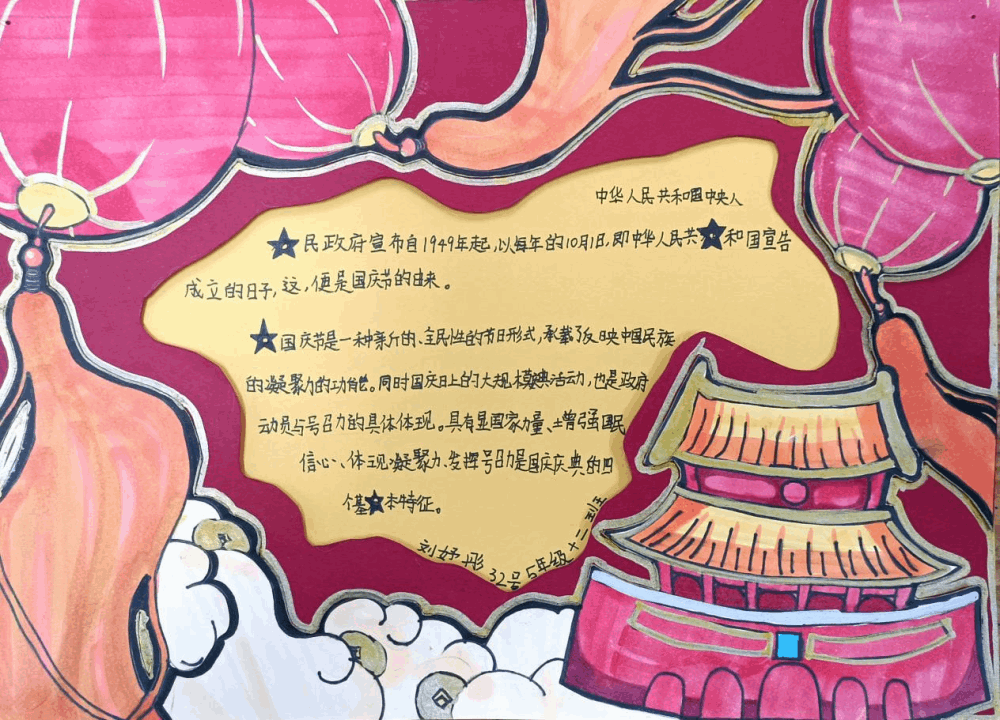 中华人民共和国中央人
民政府宣布自1949年起,以每年的10月1日,即中华人民共和国宣告
成立的日子,这,便是国庆节的由来。
国庆节是一种亲斤的、全民性的节日形式,承载了反映中国民族
的凝聚力的功能。同时国庆日上的大规模典活动,也是政府
动员与号召力的具体体现。具有显国家力量、增强国民
信心、体现凝聚力、发挥号召力是国庆庆典的四
个基本特征。
刘妤彤 32号 5年级十二班